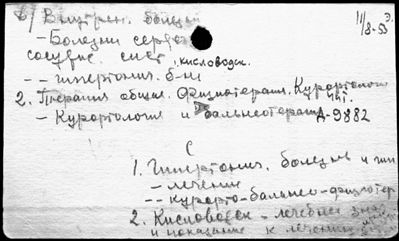 б) Внутрен. болезни
11/8-53 г.
- Болезни сердеч
сосудис. сист. , кисловодск.
-- гипертонич. б-нь
2. Терапия общая. Физиотерапия. Курортология
- Курортология и бальнеотерапия А-9882
С
1. Гипертонич. болезнь и гип
- лечение
-- курорто-бальнео-физиотер
2. Кисловодск - лечебные
и показание к лечению